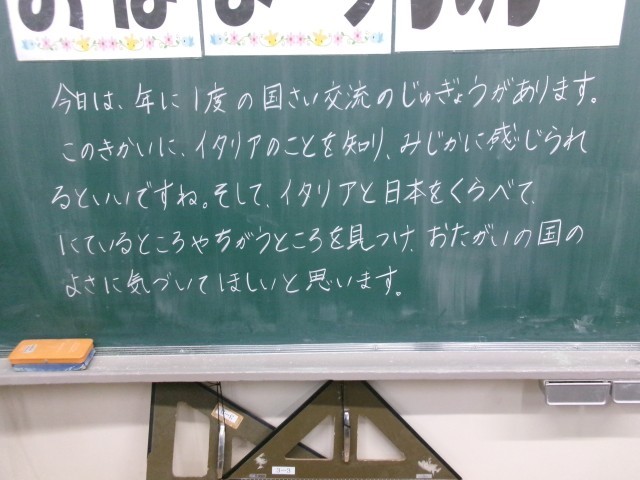 今日は、年に1度の国さい交流のじゅぎょうがあります。
このきかいに、イタリアのことを知り、みじかに感じられ
るといいですね。そして、イタリアと日本をくらべて、
にているところやちがうところを見つけ、おたがいの国の
よさに気づいてほしいと思います。
3-3